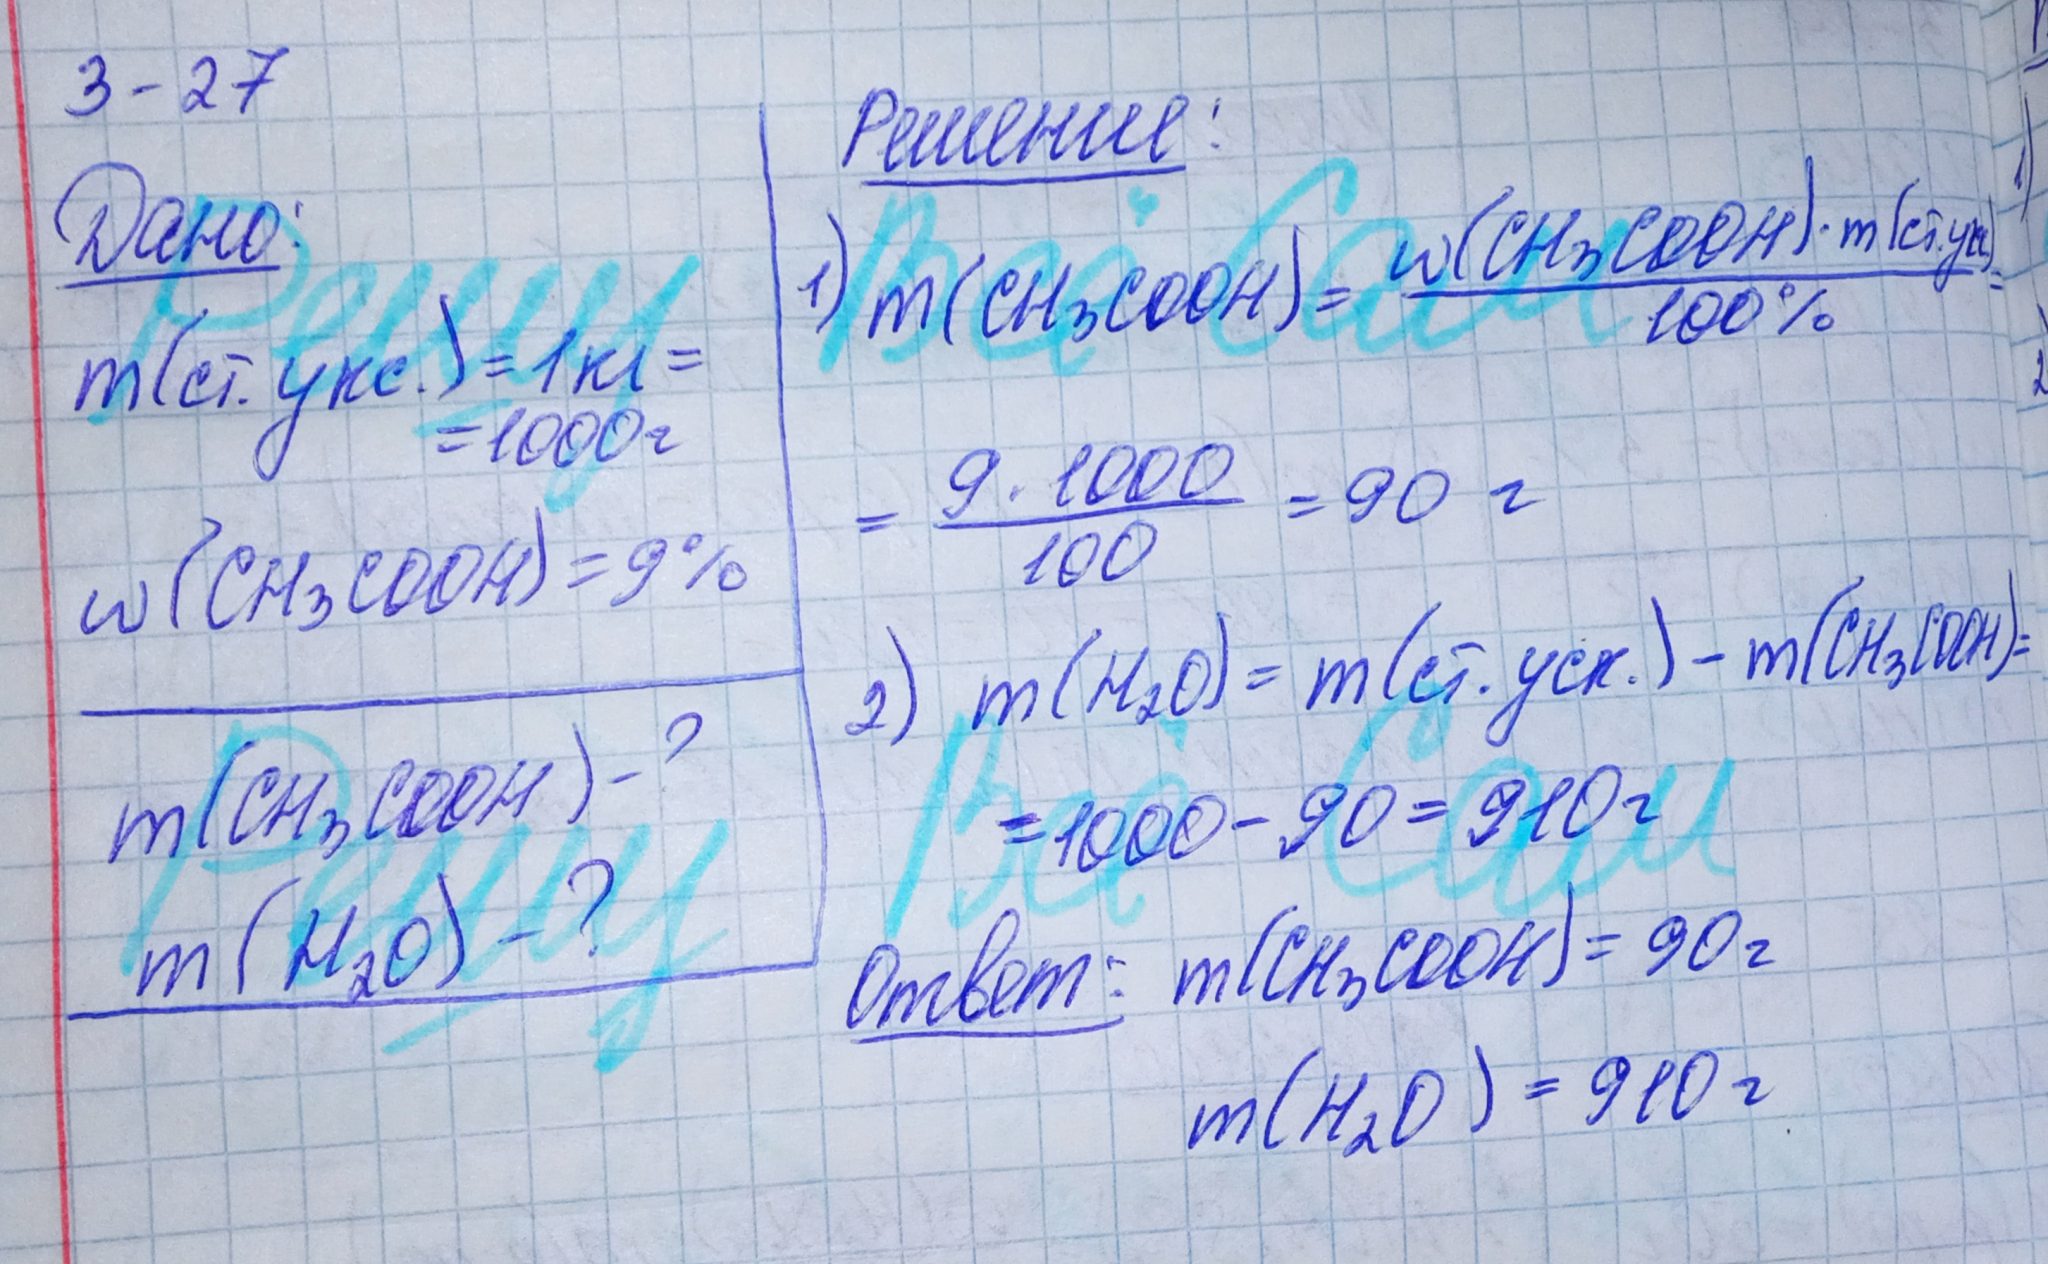 3-27
Дано:
m(ст. укс.) = 1 кг =
= 1000 г
w(CH₃COOH) = 9%
m(CH₃COOH) - ?
m(H₂O) - ?
Решение:
1) m(CH₃COOH) = w(CH₃COOH) · m(ст. укс) =
100%
= 9 · 1000 = 90 г
100
2) m(H₂O) = m(ст. уск.) - m(CH₃COOH) =
= 1000 - 90 = 910 г
Ответ: m(CH₃COOH) = 90 г
m(H₂O) = 910 г
Решу Всё Сам
Решу Всё Сам
1)
2)